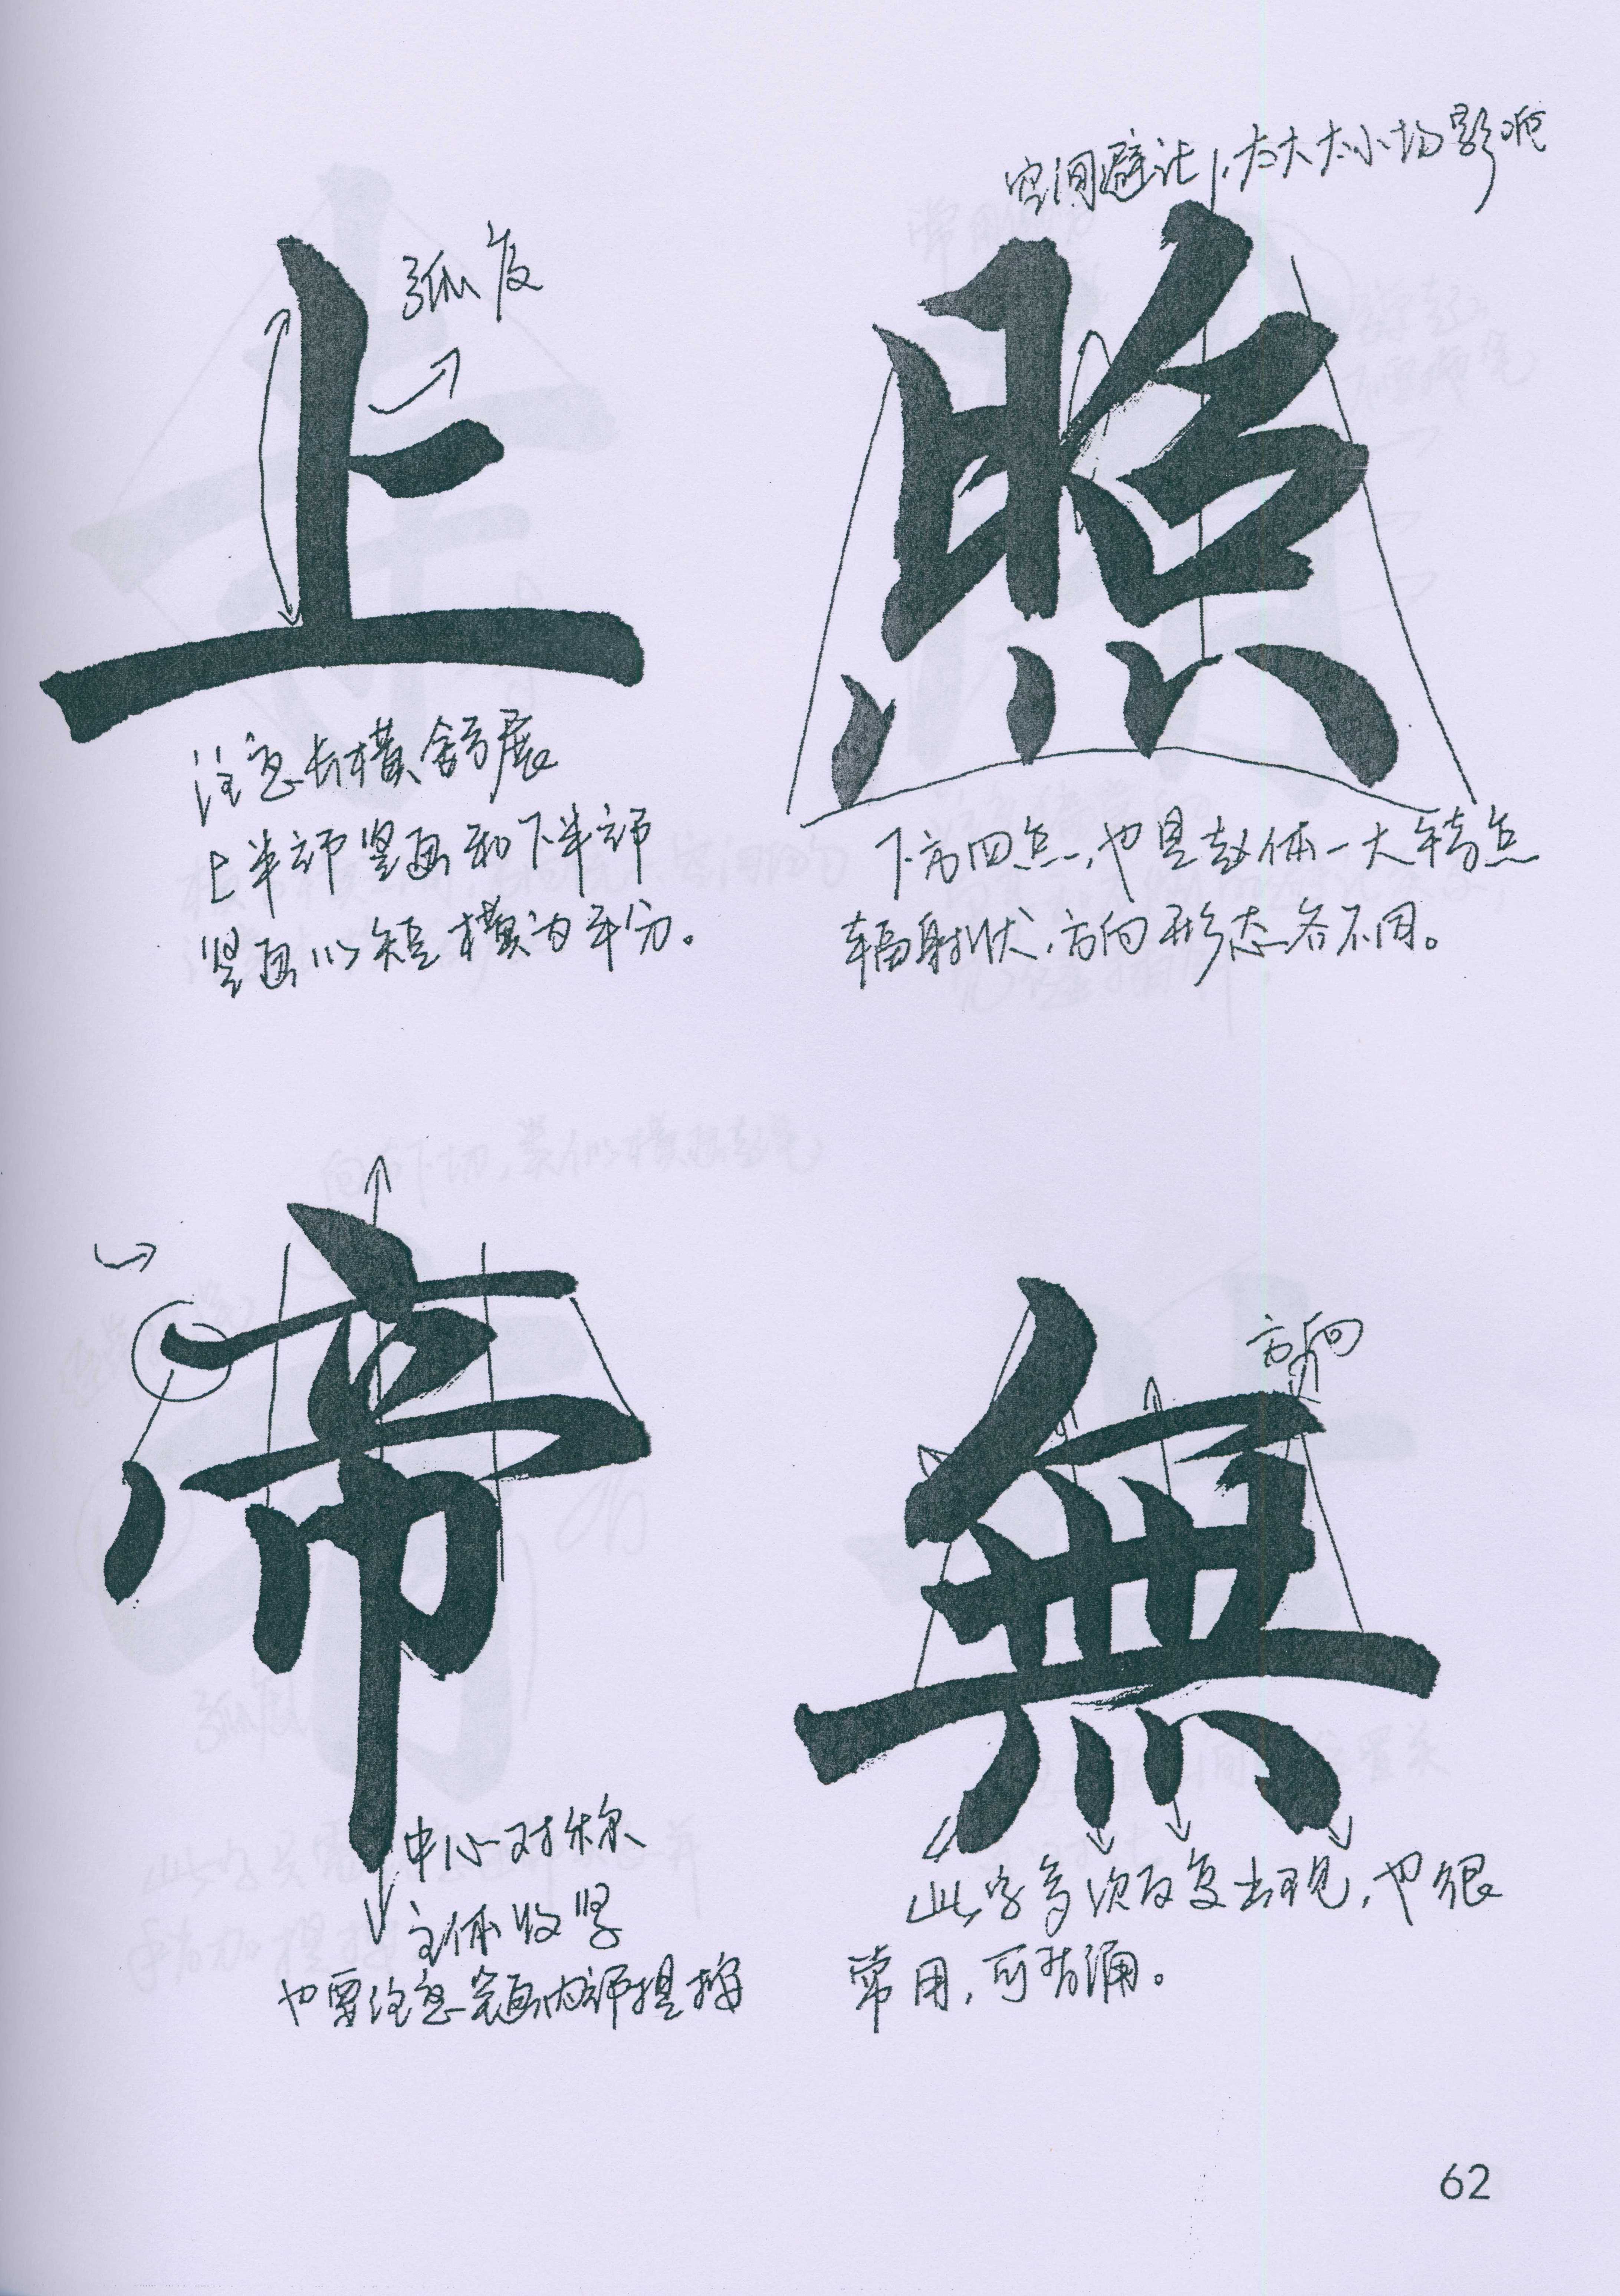 上
弧度
注意长横舒展
上半部竖画和下半部
竖画以短横为平分。
空间避让,太大太小均影响
照
下方四点,也是赵体一大特点
辐射状,方向形态各不同。
帝
中心对称
主体收紧
也要注意笔画内部提按
方向
無
此字多次反复出现,也很
常用,可背诵。
62